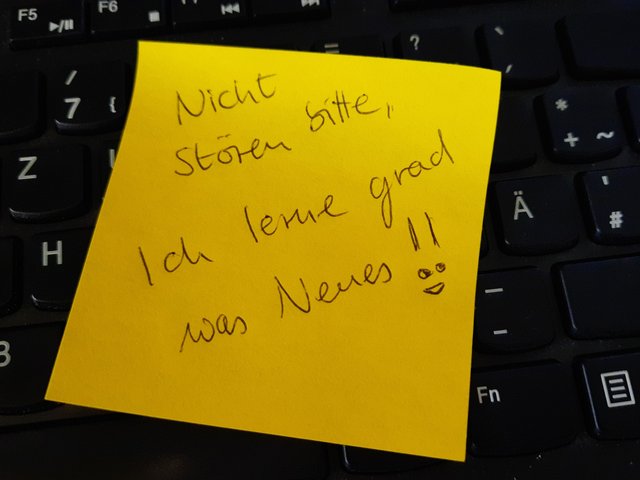 F5
F6
/
7 {
Z
H
B
?
`
*
+ ~
Ä
'
#
–
-
Fn
Nicht
Stören bitte,
Ich lerne grad
was Neues !!